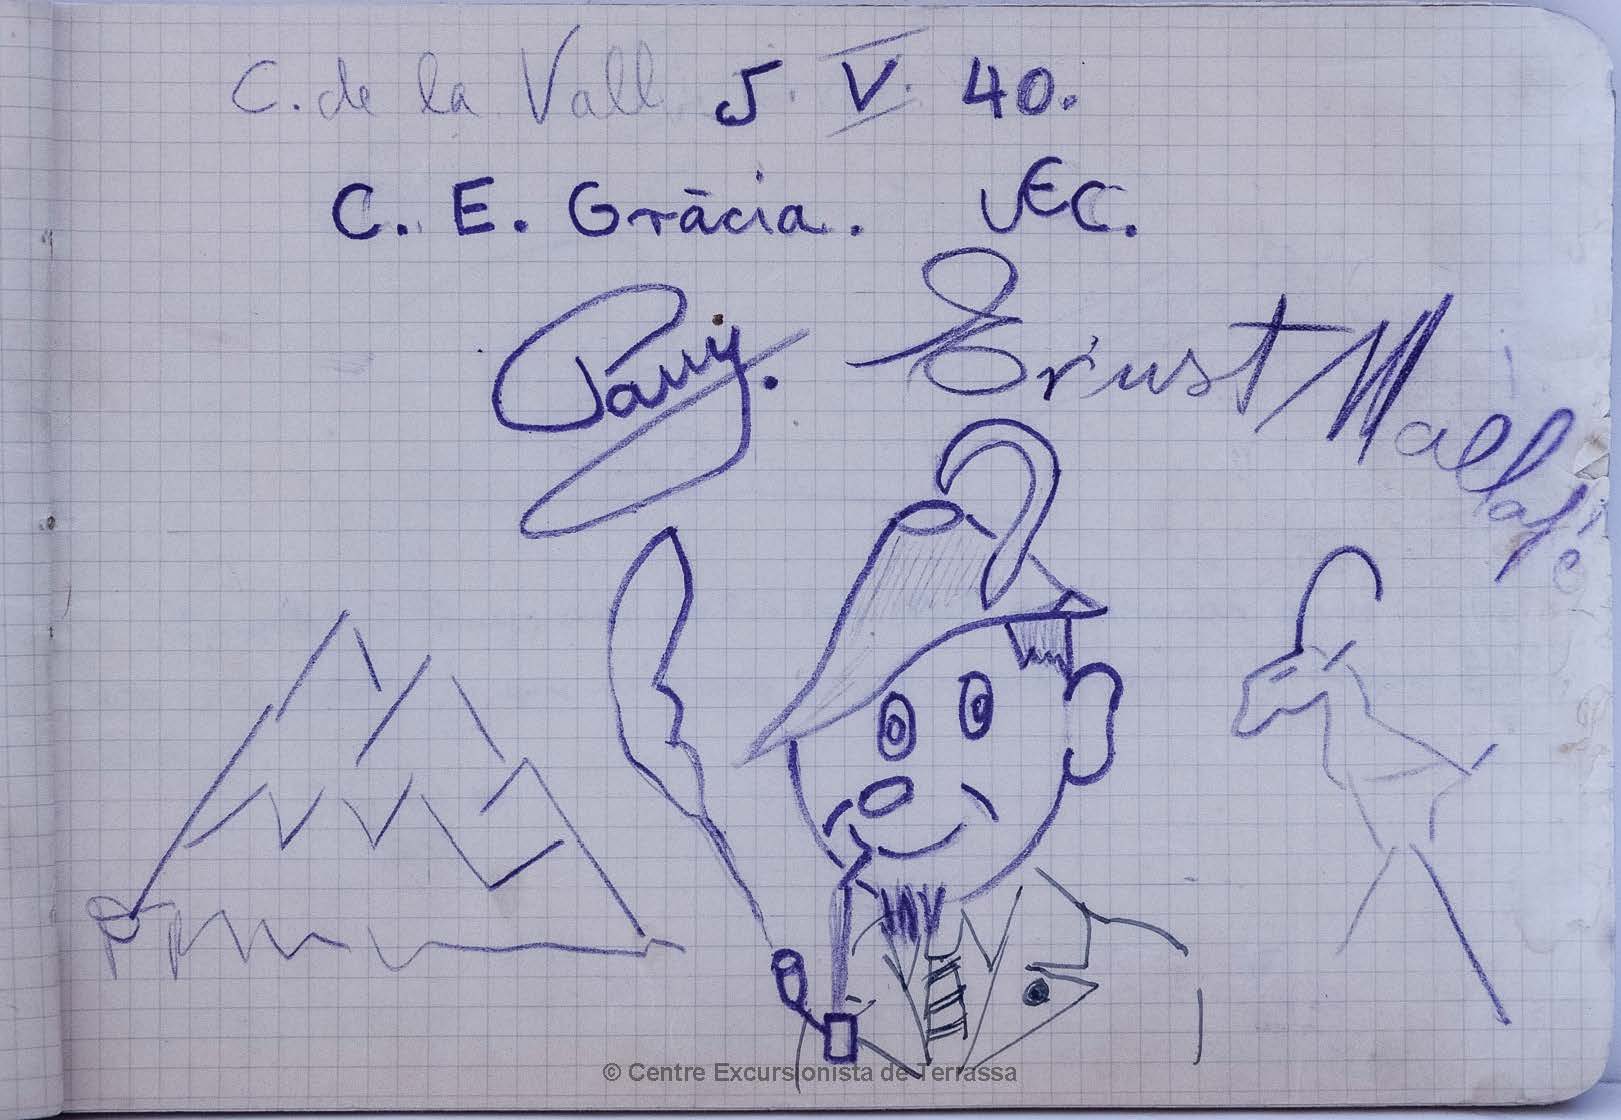 C. de la Vall 5. V. 40.
C. E. Gràcia. UEC.
Ernest Mallafré
© Centre Excursionista de Terrassa